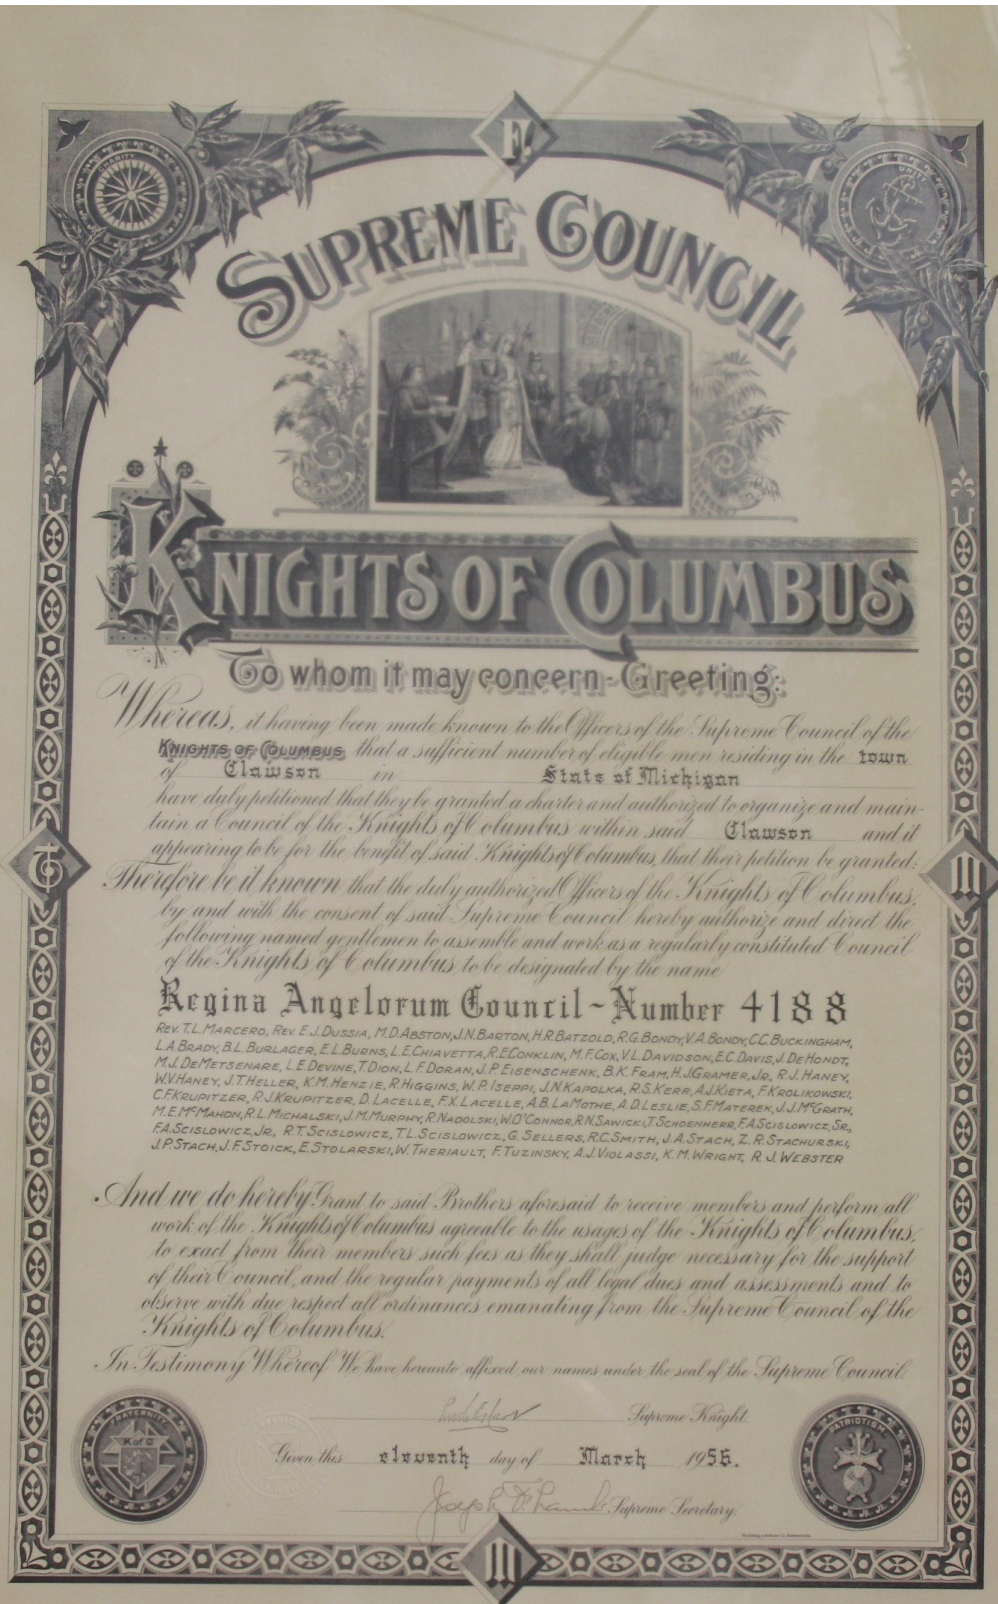 F.
CHARITY
UNITY
SUPREME COUNCIL
KNIGHTS OF COLUMBUS
To whom it may concern - Greeting:
Whereas, it having been made known to the Officers of the Supreme Council of the
KNIGHTS OF COLUMBUS that a sufficient number of eligible men residing in the town
of Clawson in State of Michigan
have duly petitioned that they be granted a charter and authorized to organize and main-
tain a Council of the Knights of Columbus within said Clawson and it
appearing to be for the benefit of said Knights of Columbus, that their petition be granted:
Therefore be it known that the duly authorized Officers of the Knights of Columbus,
by and with the consent of said Supreme Council hereby authorize and direct the
following named gentlemen to assemble and work as a regularly constituted Council
of the Knights of Columbus to be designated by the name
Regina Angelorum Council - Number 4188
REV. T.L. MARCERO, REV. E.J. DUSSIA, M.D. ABSTON, J.N. BARTON, H.R. BATZOLD, R.G. BONDY, V.A. BONDY, C.C. BUCKINGHAM,
L.A. BRADY, B.L. BURLAGER, E.L. BURNS, L.E. CHIAVETTA, R.E. CONKLIN, M.F. COX, V.L. DAVIDSON, E.C. DAVIS, J. DEHONDT,
M.J. DEMETSENARE, L.E. DEVINE, T. DION, L.F. DORAN, J.P. EISENSCHENK, B.K. FRAM, H.J. GRAMER, JR., R.J. HANEY,
W.V. HANEY, J.T. HELLER, K.M. HENZIE, R. HIGGINS, W.P. ISEPPI, J.N. KAPOLKA, R.S. KERR, A.J. KIETA, F. KROLIKOWSKI,
C.F. KRUPITZER, R.J. KRUPITZER, D. LACELLE, F.X. LACELLE, A.B. LAMOTHE, A.D. LESLIE, S.F. MATEREK, J.J. McGRATH,
M.E. McMAHON, R.L. MICHALSKI, J.M. MURPHY, R. NADOLSKI, W. O'CONNOR, R.N. SAWICKI, T. SCHOENHERR, F.A. SCISLOWICZ, SR.,
F.A. SCISLOWICZ, JR., R.T. SCISLOWICZ, T.L. SCISLOWICZ, G. SELLERS, R.C. SMITH, J.A. STACH, Z.R. STACHURSKI,
J.P. STACH, J.F. STOICK, E. STOLARSKI, W. THERIAULT, F. TUZINSKY, A.J. VIOLASSI, K.M. WRIGHT, R.J. WEBSTER
And we do hereby Grant to said Brothers aforesaid to receive members and perform all
work of the Knights of Columbus agreable to the usages of the Knights of Columbus,
to exact from their members such fees as they shall judge necessary for the support
of their Council, and the regular payments of all legal dues and assessments and to
observe with due respect all ordinances emanating from the Supreme Council of the
Knights of Columbus.
In Testimony Whereof We have hereunto affixed our names under the seal of the Supreme Council.
Supreme Knight
Given this eleventh day of March 1956.
Joseph F. Lamb Supreme Secretary.
FRATERNITY
K of C
PATRIOTISM